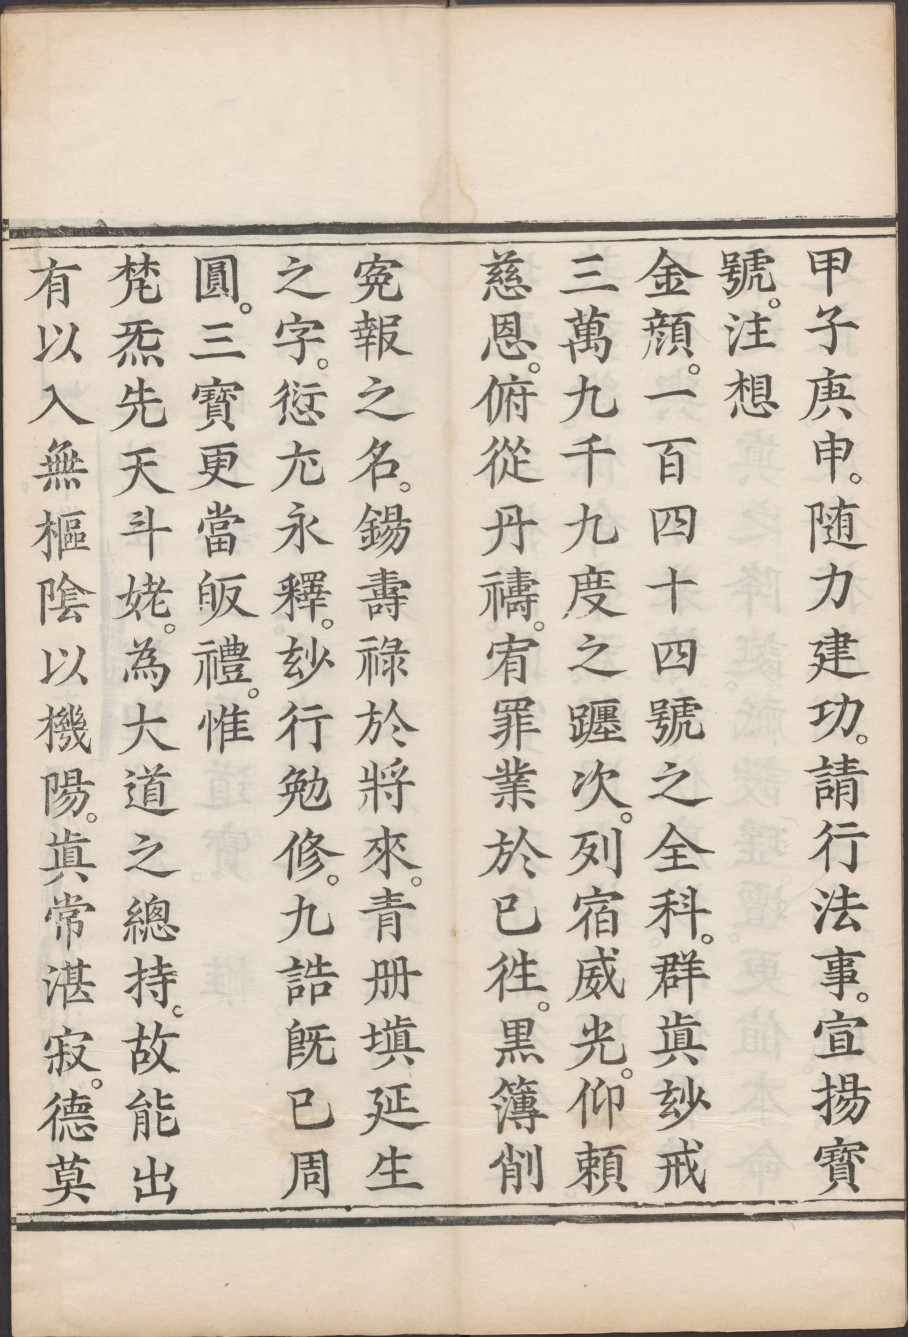 甲子庚申。随力建功。請行法事。宣揚寶
號。注想
金顔。一百四十四號之全科。群眞玅戒
三萬九千九度之躔次。列宿威光。仰頼
慈恩。俯從丹禱。宥罪業於已徃。黒簿削
寃報之名。錫壽禄於將來。青册塡延生
之字。愆尢永釋。玅行勉修。九誥旣已周
圓。三寳更當皈禮。惟
梵炁先天斗姥。為大道之總持。故能出
有以入無樞陰以機陽。眞常湛寂。德莫